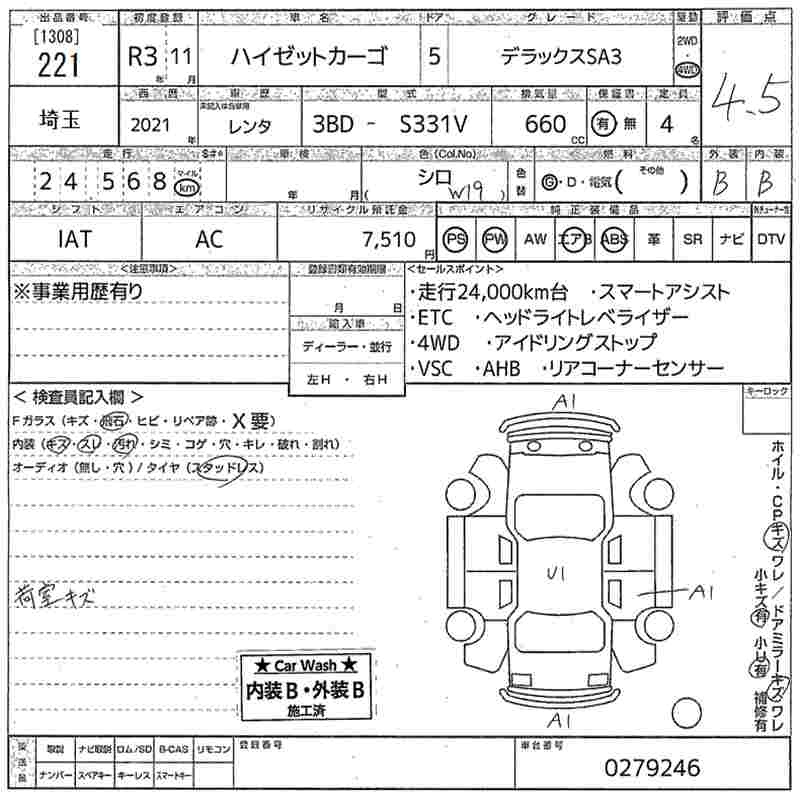 出品番号 初度登録 車名 ドア グレード 駆動 評価点
[1308] 221 R3年 11月 ハイゼットカーゴ 5 デラックスSA3 2WD・4WD 4.5
西暦 車歴 型式 排気量 保証書 定員
埼玉 2021年 未記入は自家用 レンタ 3BD - S331V 660cc 有 無 4名
走行 S#* 車検 色(Col.No) 燃料 外装 内装
2 4 5 6 8 マイル km 年 月 シロ ( W19 ) 色替 G・D・電気( その他 ) B B
シフト エアコン リサイクル預託金 純正装備品
IAT AC 7,510円 PS PW AW エアB ABS 革 SR ナビ DTV
<注意事項> 登録書類有効期限 <セールスポイント>
※事業用歴有り 月 日 ・走行24,000km台 ・スマートアシスト
輸入車 ・ETC ・ヘッドライトレベライザー
ディーラー・並行 ・4WD ・アイドリングストップ
左H ・ 右H ・VSC ・AHB ・リアコーナーセンサー
< 検査員記入欄 > キーロック
Fガラス (キズ・飛石・ヒビ・リペア跡・X要)
内装 (キズ・スレ・汚れ・シミ・コゲ・穴・キレ・破れ・割れ)
オーディオ (無し・穴) / タイヤ (スタッドレス)
A1
U1
A1
A1
荷室キズ
ホイル・CPキズワレ/ドアミラーキズワレ
小キズ有 小U有 補修有
★ Car Wash ★
内装B・外装B
施工済
後送品 取説 ナビ取説 ロム/SD B-CAS リモコン 登録番号 車台番号
ナンバー スペアキー キーレス スマートキー 0279246